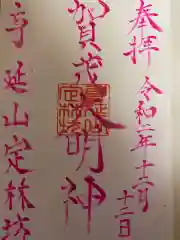 奉拝 令和二年十二月
十二日
賀茂大明神
延山定林坊